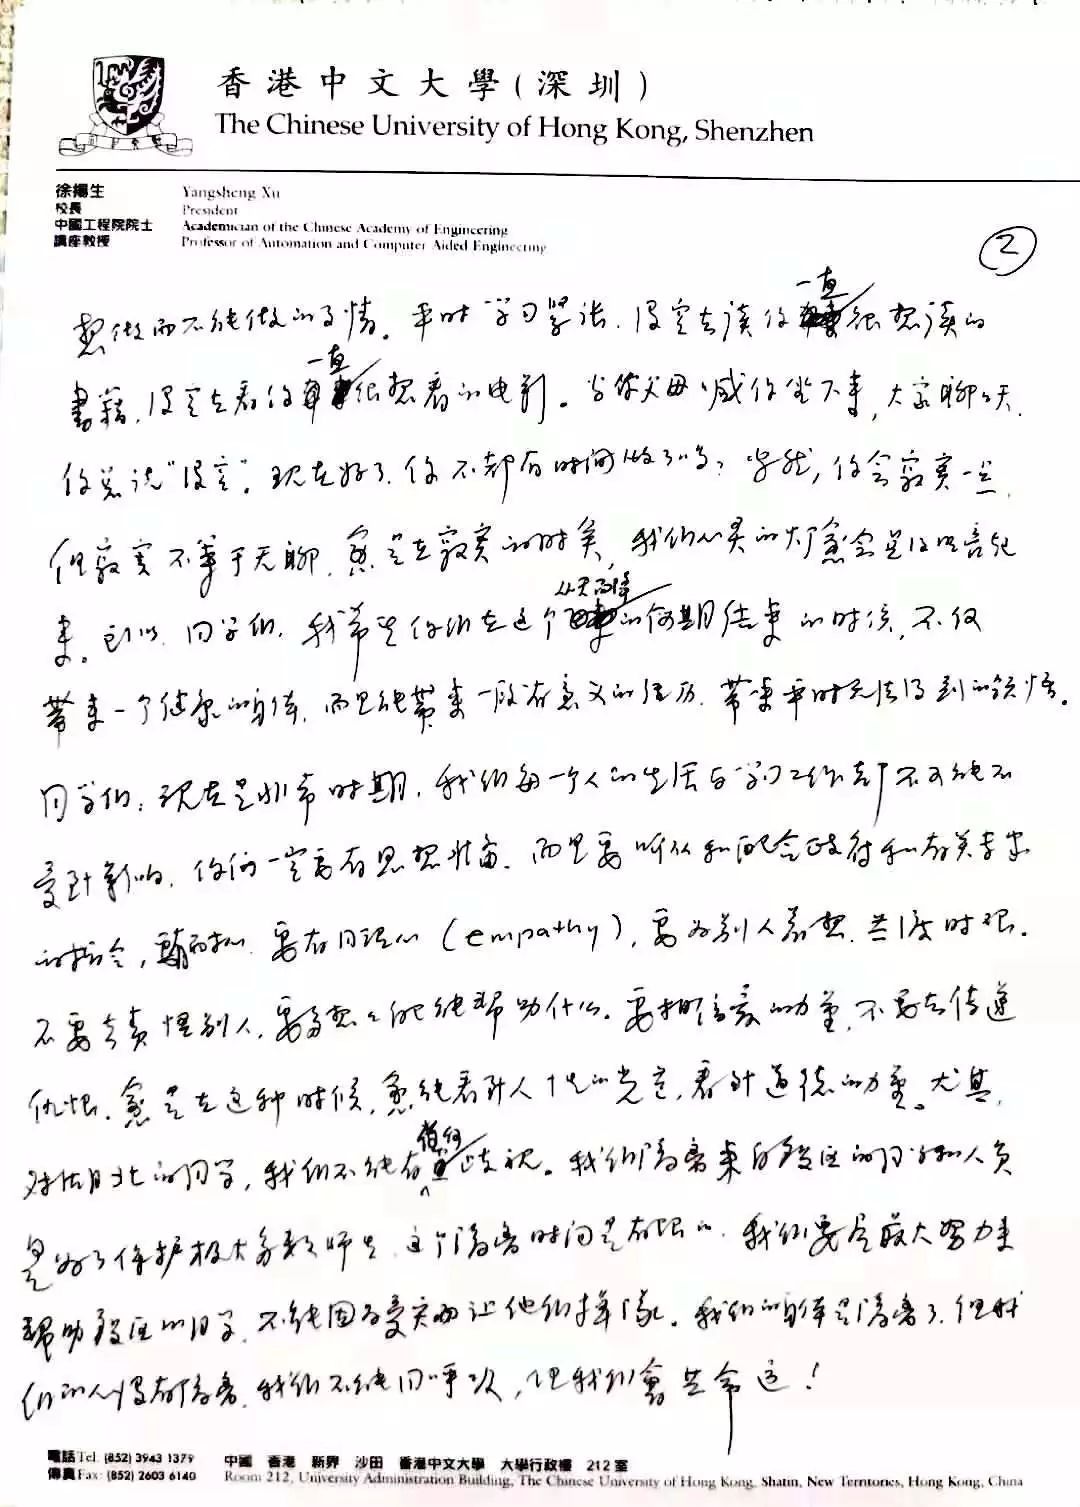 香港中文大學（深圳）
The Chinese University of Hong Kong, Shenzhen
徐揚生 Yangsheng Xu
校長 President
中國工程院院士 Academician of the Chinese Academy of Engineering
講座教授 Professor of Automation and Computer Aided Engineering
2
想做而不能做的事情。平时学习紧张，没空去读你一直很想读的
書籍，没空去看你一直很想看的电影。当你父母喊你坐下来，大家聊聊天，
你总说“没空”。现在好了，你不都有时间做了吗？当然，你会寂寞一点，
但寂寞不等于无聊，愈是在寂寞的时候，我们心灵的火炉愈会
来。所以，同学们，我希望你们在这个从天而降的假期结束的时候，不仅
带来一个健康的身体，而且能带来一段有意义的经历，带来平时无法得到的领悟。
同学们：现在是非常时期，我们每一个人的生活与学习工作都不可能不
受到影响，你们一定要有思想准备，而且要听从和配合政府和有关专家
的指令，要有同理心（empathy），要为别人着想，共度时艰。
不要去责怪别人，要多想想他能帮助什么。要相信爱的力量，不要去传递
仇恨。愈是在这种时候，愈能看到人性的光亮，看到道德的力量。尤其，
对湖北的同学，我们不能有任何歧视。我们隔离来自疫区的同学和人员
是为了保护极大多数师生，这个隔离时间是有限的，我们要尽最大努力来
帮助疫区的同学，不能因为受灾而让他们掉队。我们的身体是隔离了，但我
们的心没有隔离，我们不能同呼吸，但我们會共命运！
電話 Tel: (852) 3943 1379 中國 香港 新界 沙田 香港中文大學 大學行政樓 212室
傳真 Fax: (852) 2603 6140 Room 212, University Administration Building, The Chinese University of Hong Kong, Shatin, New Territories, Hong Kong, China